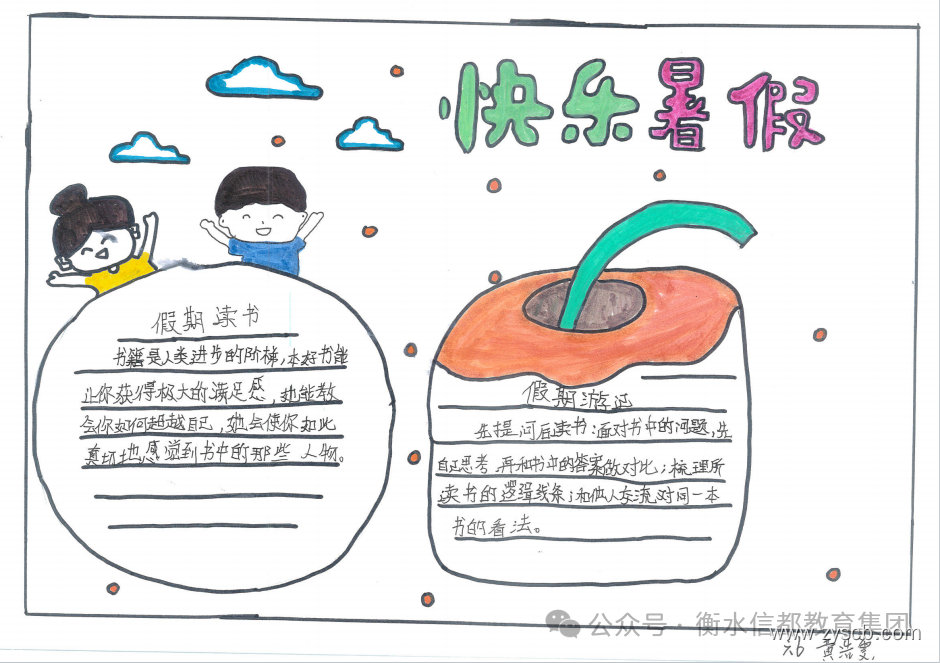 快乐暑假
假期读书
书籍是人类进步的阶梯,本好书能
让你获得极大的满足感,她能教
会你如何超越自己,她会使你如此
真切地感觉到书中的那些人物。
假期游记
先提问后读书:面对书中的问题,先
自己思考,再和书中的答案做对比;梳理所
读书的逻辑线条;和他人交流对同一本
书的看法。
公众号·衡水信都教育集团
www.zyscb.com
六6 黄浩